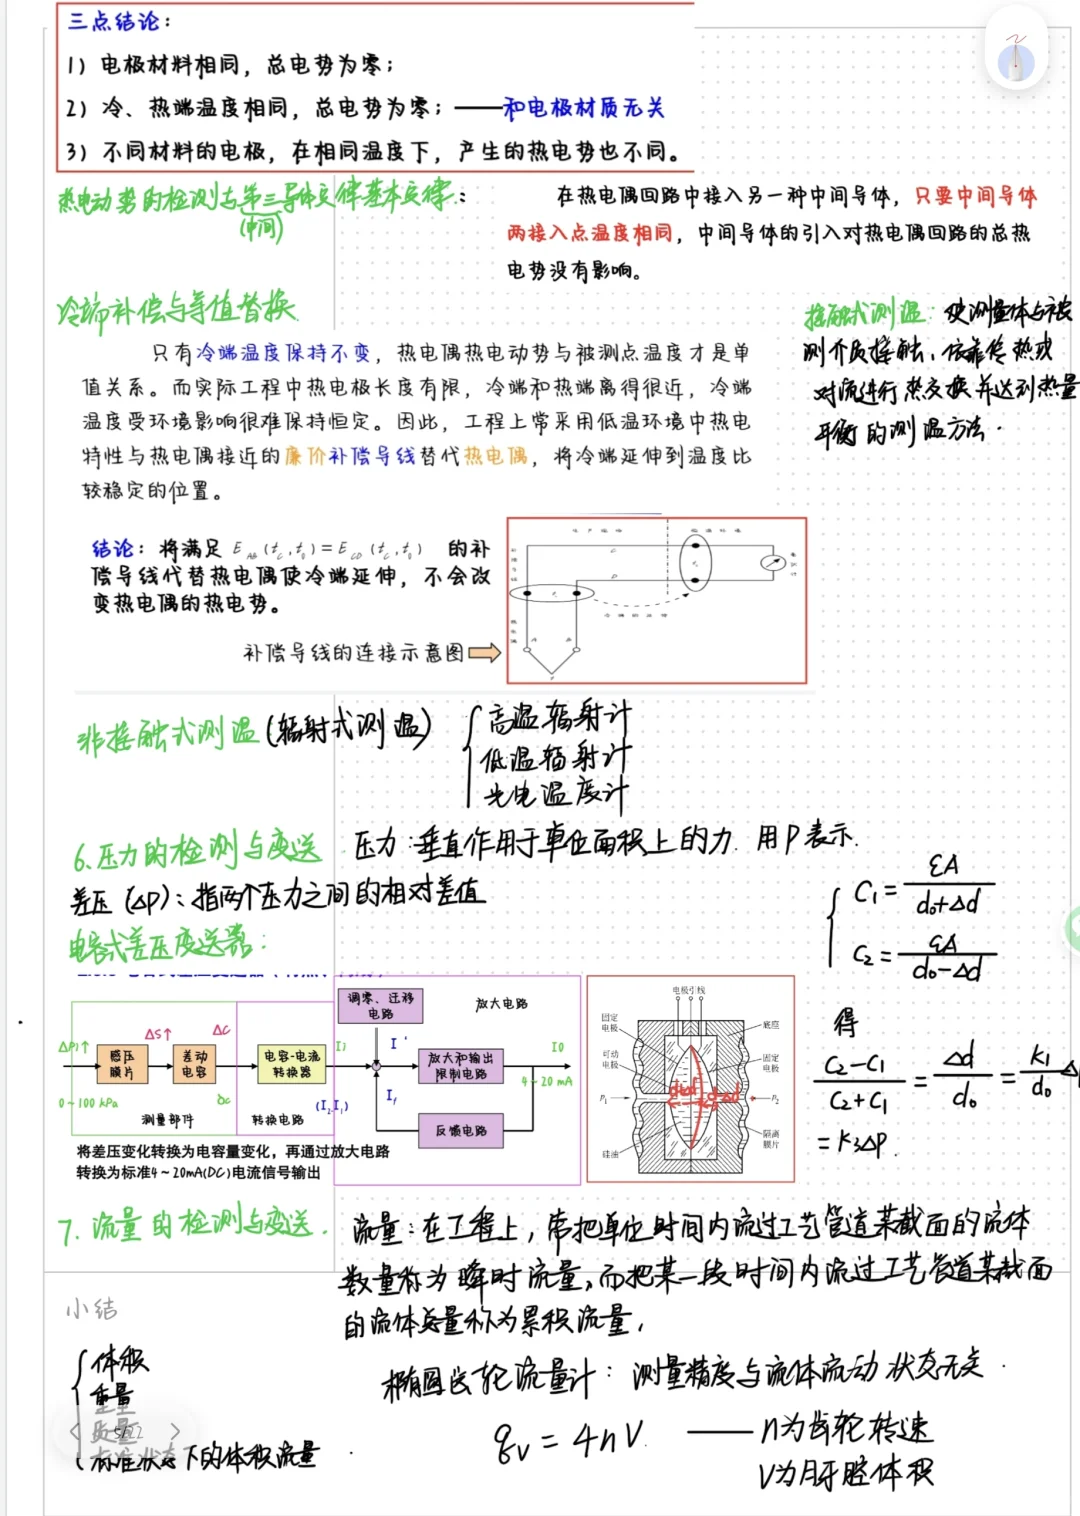 三点结论：
1）电极材料相同，总电势为零；
2）冷、热端温度相同，总电势为零；——和电极材质无关
3）不同材料的电极，在相同温度下，产生的热电势也不同。
热电动势的检测与第三导体定律基本定律：
(中间)
在热电偶回路中接入另一种中间导体，只要中间导体
两接入点温度相同，中间导体的引入对热电偶回路的总热
电势没有影响。
冷端补偿与等值替换
只有冷端温度保持不变，热电偶热电动势与被测点温度才是单
值关系。而实际工程中热电极长度有限，冷端和热端离得很近，冷端
温度受环境影响很难保持恒定。因此，工程上常采用低温环境中热电
特性与热电偶接近的廉价补偿导线替代热电偶，将冷端延伸到温度比
较稳定的位置。
接触式测温：使测量体与被
测介质接触、依靠传热或
对流进行热交换并达到热量
平衡的测温方法.
结论：将满足 E_AB(t_C,t_0)=E_CD(t_C,t_0) 的补
偿导线代替热电偶使冷端延伸，不会改
变热电偶的热电势。
补偿导线的连接示意图
非接触式测温(辐射式测温)
高温辐射计
低温辐射计
光电温度计
6.压力的检测与变送
压力:垂直作用于单位面积上的力.用P表示.
差压(ΔP):指两个压力之间的相对差值
电容式差压变送器:
C1=εA/(d0+Δd)
C2=εA/(d0-Δd)
得
(C2-C1)/(C2+C1)=Δd/d0=K1/d0 Δ
=K3ΔP.
ΔP1↑
0~100 kPa
感压
膜片
ΔS↑
差动
电容
ΔC
测量部件
电容-电流
转换器
转换电路
(I2-I1)
调零、迁移
电路
放大电路
I1
I'
If
放大和输出
限制电路
反馈电路
I0
4~20 mA
将差压变化转换为电容量变化，再通过放大电路
转换为标准4~20mA(DC)电流信号输出
电极引线
固定
电极
可动
电极
P1
硅油
底座
固定
电极
P2
隔离
膜片
7.流量的检测与变送.
流量:在工程上，常把单位时间内流过工艺管道某截面的流体
数量称为瞬时流量,而把某一段时间内流过工艺管道某截面
的流体总量称为累积流量,
小结
体积
重量
质量
标准状态下的体积流量
5/22
椭圆齿轮流量计:测量精度与流体流动状态无关.
qv=4nV.——n为齿轮转速
V为月牙腔体积